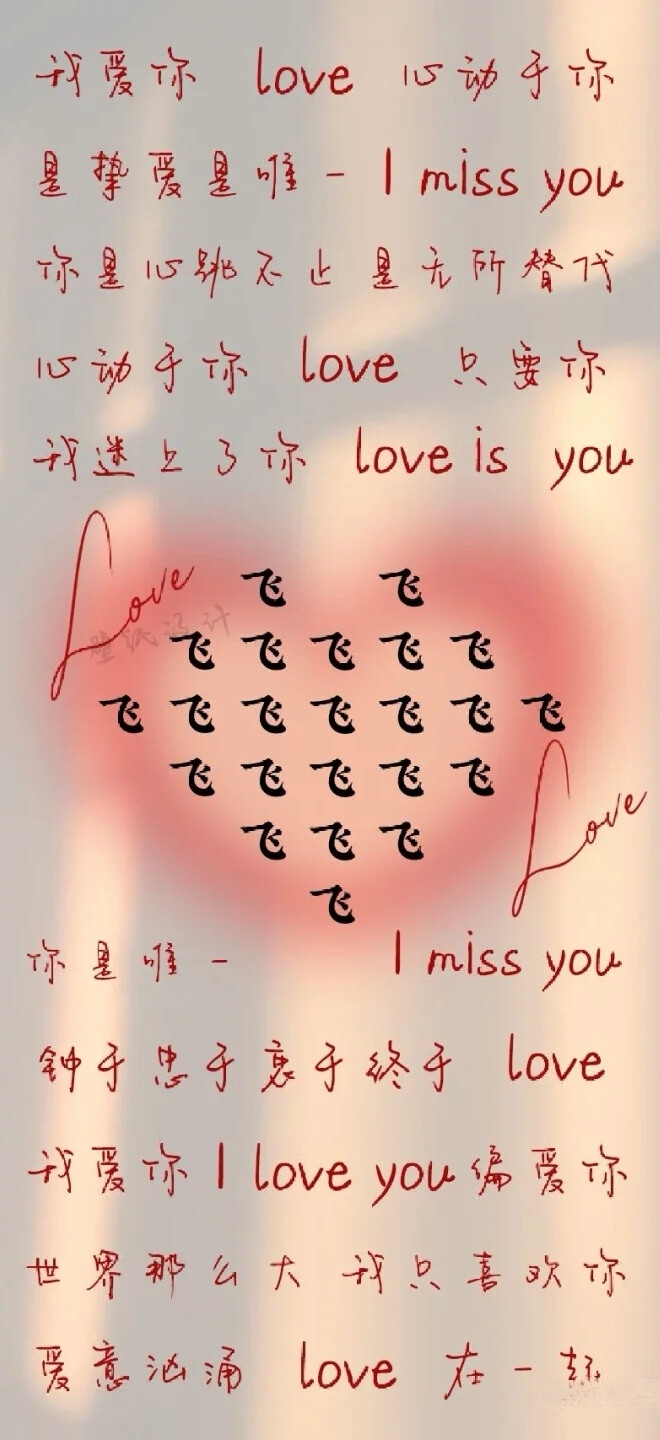 我爱你 love 心动于你
是挚爱是唯一 I miss you
你是心跳不止是无所替代
心动于你 love 只要你
我迷上了你 love is you
Love
壁纸设计
飞 飞
飞 飞 飞 飞 飞
飞 飞 飞 飞 飞 飞 飞
飞 飞 飞 飞 飞
飞 飞 飞
飞
Love
你是唯一 I miss you
钟于忠于衷于终于 love
我爱你 I love you 偏爱你
世界那么大 我只喜欢你
爱意汹涌 love 在一起